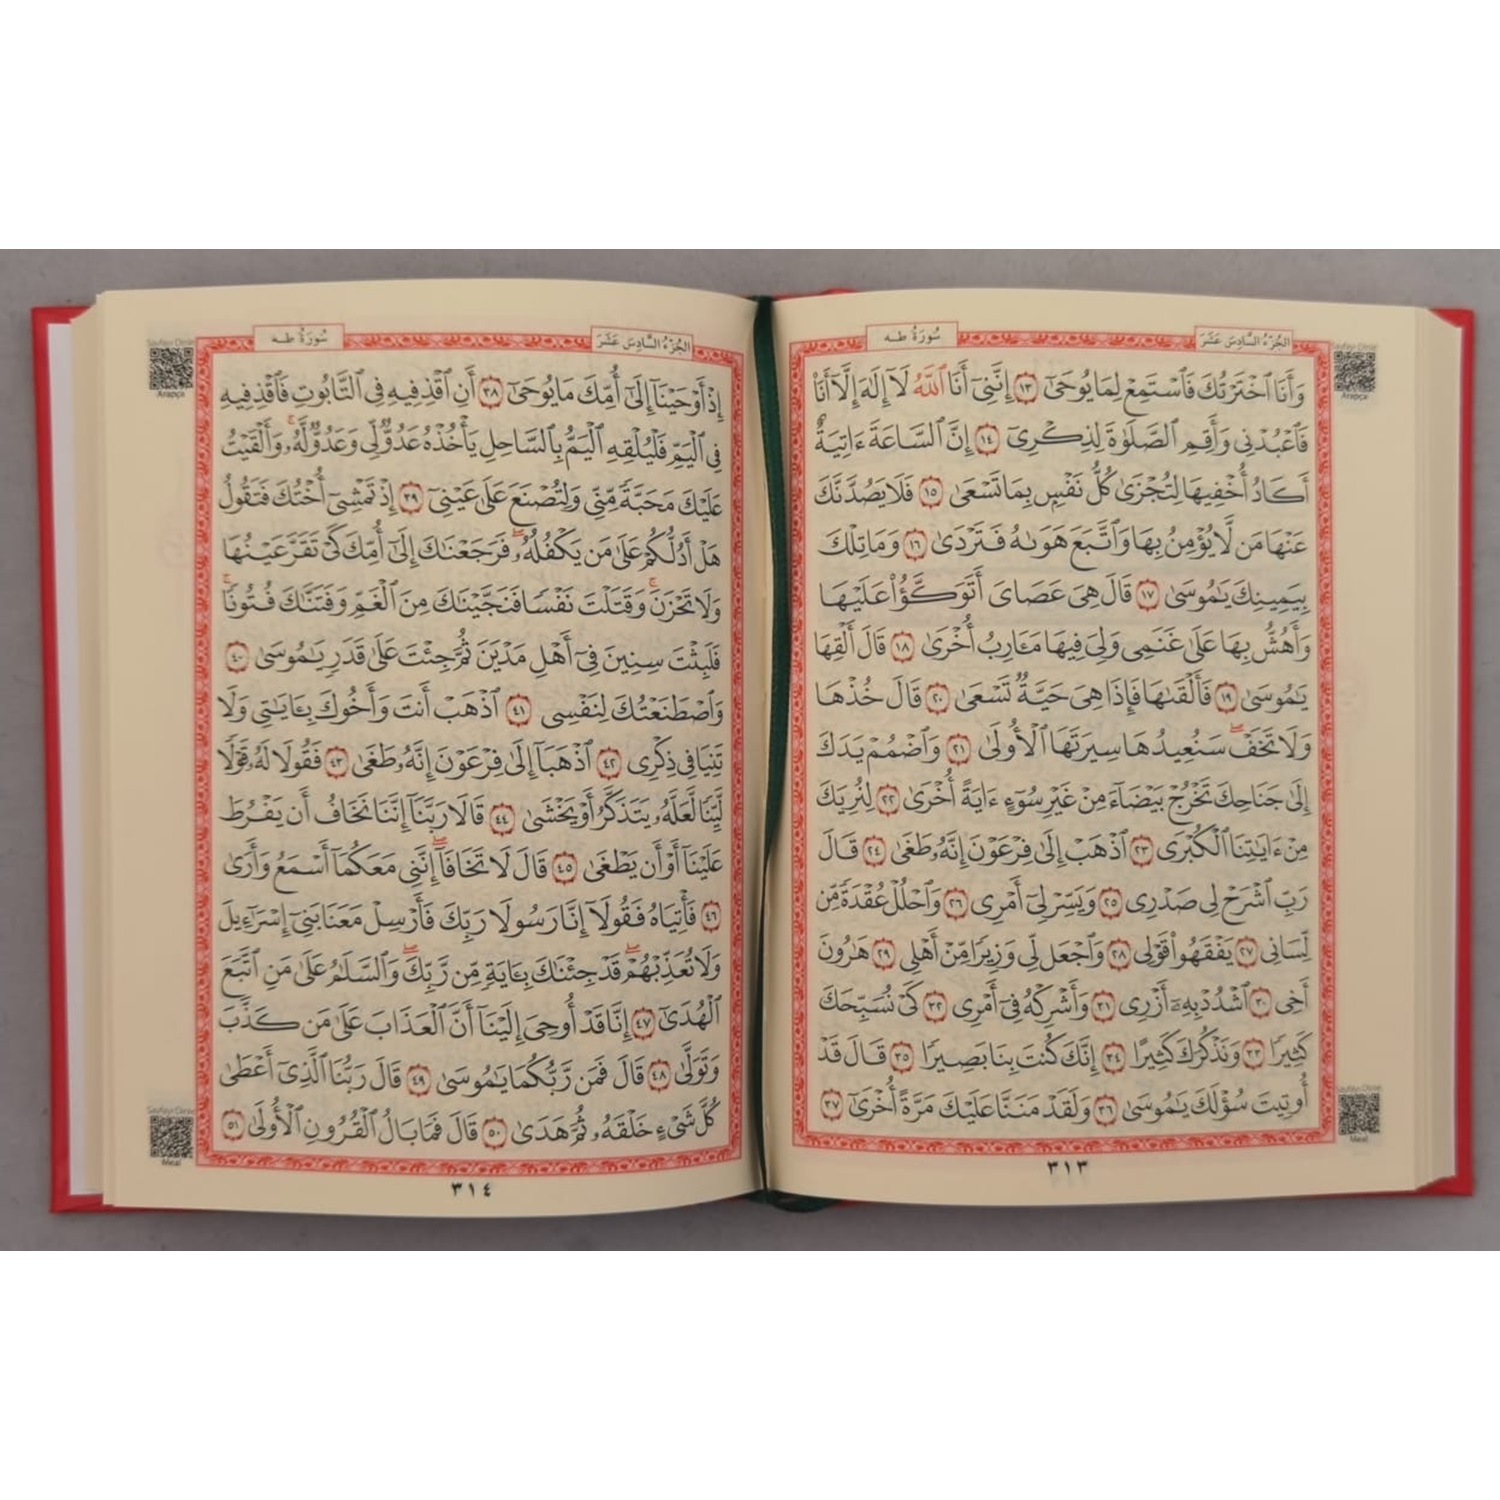 الجزء السادس عشر
سورة طه
وَأَنَا ٱخْتَرْتُكَ فَٱسْتَمِعْ لِمَا يُوحَىٰٓ ١٣ إِنَّنِىٓ أَنَا ٱللَّهُ لَآ إِلَٰهَ إِلَّآ أَنَا۠
فَٱعْبُدْنِى وَأَقِمِ ٱلصَّلَوٰةَ لِذِكْرِىٓ ١٤ إِنَّ ٱلسَّاعَةَ ءَاتِيَةٌ
أَكَادُ أُخْفِيهَا لِتُجْزَىٰ كُلُّ نَفْسٍۭ بِمَا تَسْعَىٰ ١٥ فَلَا يَصُدَّنَّكَ
عَنْهَا مَن لَّا يُؤْمِنُ بِهَا وَٱتَّبَعَ هَوَىٰهُ فَتَرْدَىٰ ١٦ وَمَا تِلْكَ
بِيَمِينِكَ يَٰمُوسَىٰ ١٧ قَالَ هِىَ عَصَاىَ أَتَوَكَّؤُا۟ عَلَيْهَا
وَأَهُشُّ بِهَا عَلَىٰ غَنَمِى وَلِىَ فِيهَا مَـَٔارِبُ أُخْرَىٰ ١٨ قَالَ أَلْقِهَا
يَٰمُوسَىٰ ١٩ فَأَلْقَىٰهَا فَإِذَا هِىَ حَيَّةٌ تَسْعَىٰ ٢٠ قَالَ خُذْهَا
وَلَا تَخَفْ ۖ سَنُعِيدُهَا سِيرَتَهَا ٱلْأُولَىٰ ٢١ وَٱضْمُمْ يَدَكَ
إِلَىٰ جَنَاحِكَ تَخْرُجْ بَيْضَآءَ مِنْ غَيْرِ سُوٓءٍ ءَايَةً أُخْرَىٰ ٢٢ لِنُرِيَكَ
مِنْ ءَايَٰتِنَا ٱلْكُبْرَى ٢٣ ٱذْهَبْ إِلَىٰ فِرْعَوْنَ إِنَّهُۥ طَغَىٰ ٢٤ قَالَ
رَبِّ ٱشْرَحْ لِى صَدْرِى ٢٥ وَيَسِّرْ لِىٓ أَمْرِى ٢٦ وَٱحْلُلْ عُقْدَةً مِّن
لِّسَانِى ٢٧ يَفْقَهُوا۟ قَوْلِى ٢٨ وَٱجْعَل لِّى وَزِيرًا مِّنْ أَهْلِى ٢٩ هَٰرُونَ
أَخِى ٣٠ ٱشْدُدْ بِهِۦٓ أَزْرِى ٣١ وَأَشْرِكْهُ فِىٓ أَمْرِى ٣٢ كَىْ نُسَبِّحَكَ
كَثِيرًا ٣٣ وَنَذْكُرَكَ كَثِيرًا ٣٤ إِنَّكَ كُنتَ بِنَا بَصِيرًا ٣٥ قَالَ قَدْ
أُوتِيتَ سُؤْلَكَ يَٰمُوسَىٰ ٣٦ وَلَقَدْ مَنَنَّا عَلَيْكَ مَرَّةً أُخْرَىٰٓ ٣٧
٣١٣
Arapça
Meal
الجزء السادس عشر
سورة طه
إِذْ أَوْحَيْنَآ إِلَىٰٓ أُمِّكَ مَا يُوحَىٰٓ ٣٨ أَنِ ٱقْذِفِيهِ فِى ٱلتَّابُوتِ فَٱقْذِفِيهِ
فِى ٱلْيَمِّ فَلْيُلْقِهِ ٱلْيَمُّ بِٱلسَّاحِلِ يَأْخُذْهُ عَدُوٌّ لِّى وَعَدُوٌّ لَّهُۥ ۚ وَأَلْقَيْتُ
عَلَيْكَ مَحَبَّةً مِّنِّى وَلِتُصْنَعَ عَلَىٰ عَيْنِىٓ ٣٩ إِذْ تَمْشِىٓ أُخْتُكَ فَتَقُولُ
هَلْ أَدُلُّكُمْ عَلَىٰ مَن يَكْفُلُهُۥ ۖ فَرَجَعْنَٰكَ إِلَىٰٓ أُمِّكَ كَىْ تَقَرَّ عَيْنُهَا
وَلَا تَحْزَنَ ۚ وَقَتَلْتَ نَفْسًا فَنَجَّيْنَٰكَ مِنَ ٱلْغَمِّ وَفَتَنَّٰكَ فُتُونًا ۚ
فَلَبِثْتَ سِنِينَ فِىٓ أَهْلِ مَدْيَنَ ثُمَّ جِئْتَ عَلَىٰ قَدَرٍ يَٰمُوسَىٰ ٤٠
وَٱصْطَنَعْتُكَ لِنَفْسِى ٤١ ٱذْهَبْ أَنتَ وَأَخُوكَ بِـَٔايَٰتِى وَلَا
تَنِيَا فِى ذِكْرِى ٤٢ ٱذْهَبَآ إِلَىٰ فِرْعَوْنَ إِنَّهُۥ طَغَىٰ ٤٣ فَقُولَا لَهُۥ قَوْلًا
لَّيِّنًا لَّعَلَّهُۥ يَتَذَكَّرُ أَوْ يَخْشَىٰ ٤٤ قَالَا رَبَّنَآ إِنَّنَا نَخَافُ أَن يَفْرُطَ
عَلَيْنَآ أَوْ أَن يَطْغَىٰ ٤٥ قَالَ لَا تَخَافَآ ۖ إِنَّنِى مَعَكُمَآ أَسْمَعُ وَأَرَىٰ
٤٦ فَأْتِيَاهُ فَقُولَآ إِنَّا رَسُولَا رَبِّكَ فَأَرْسِلْ مَعَنَا بَنِىٓ إِسْرَٰٓءِيلَ
وَلَا تُعَذِّبْهُمْ ۖ قَدْ جِئْنَٰكَ بِـَٔايَةٍ مِّن رَّبِّكَ ۖ وَٱلسَّلَٰمُ عَلَىٰ مَنِ ٱتَّبَعَ
ٱلْهُدَىٰٓ ٤٧ إِنَّا قَدْ أُوحِىَ إِلَيْنَآ أَنَّ ٱلْعَذَابَ عَلَىٰ مَن كَذَّبَ
وَتَوَلَّىٰ ٤٨ قَالَ فَمَن رَّبُّكُمَا يَٰمُوسَىٰ ٤٩ قَالَ رَبُّنَا ٱلَّذِىٓ أَعْطَىٰ
كُلَّ شَىْءٍ خَلْقَهُۥ ثُمَّ هَدَىٰ ٥٠ قَالَ فَمَا بَالُ ٱلْقُرُونِ ٱلْأُولَىٰ ٥١
٣١٤
Arapça
Meal